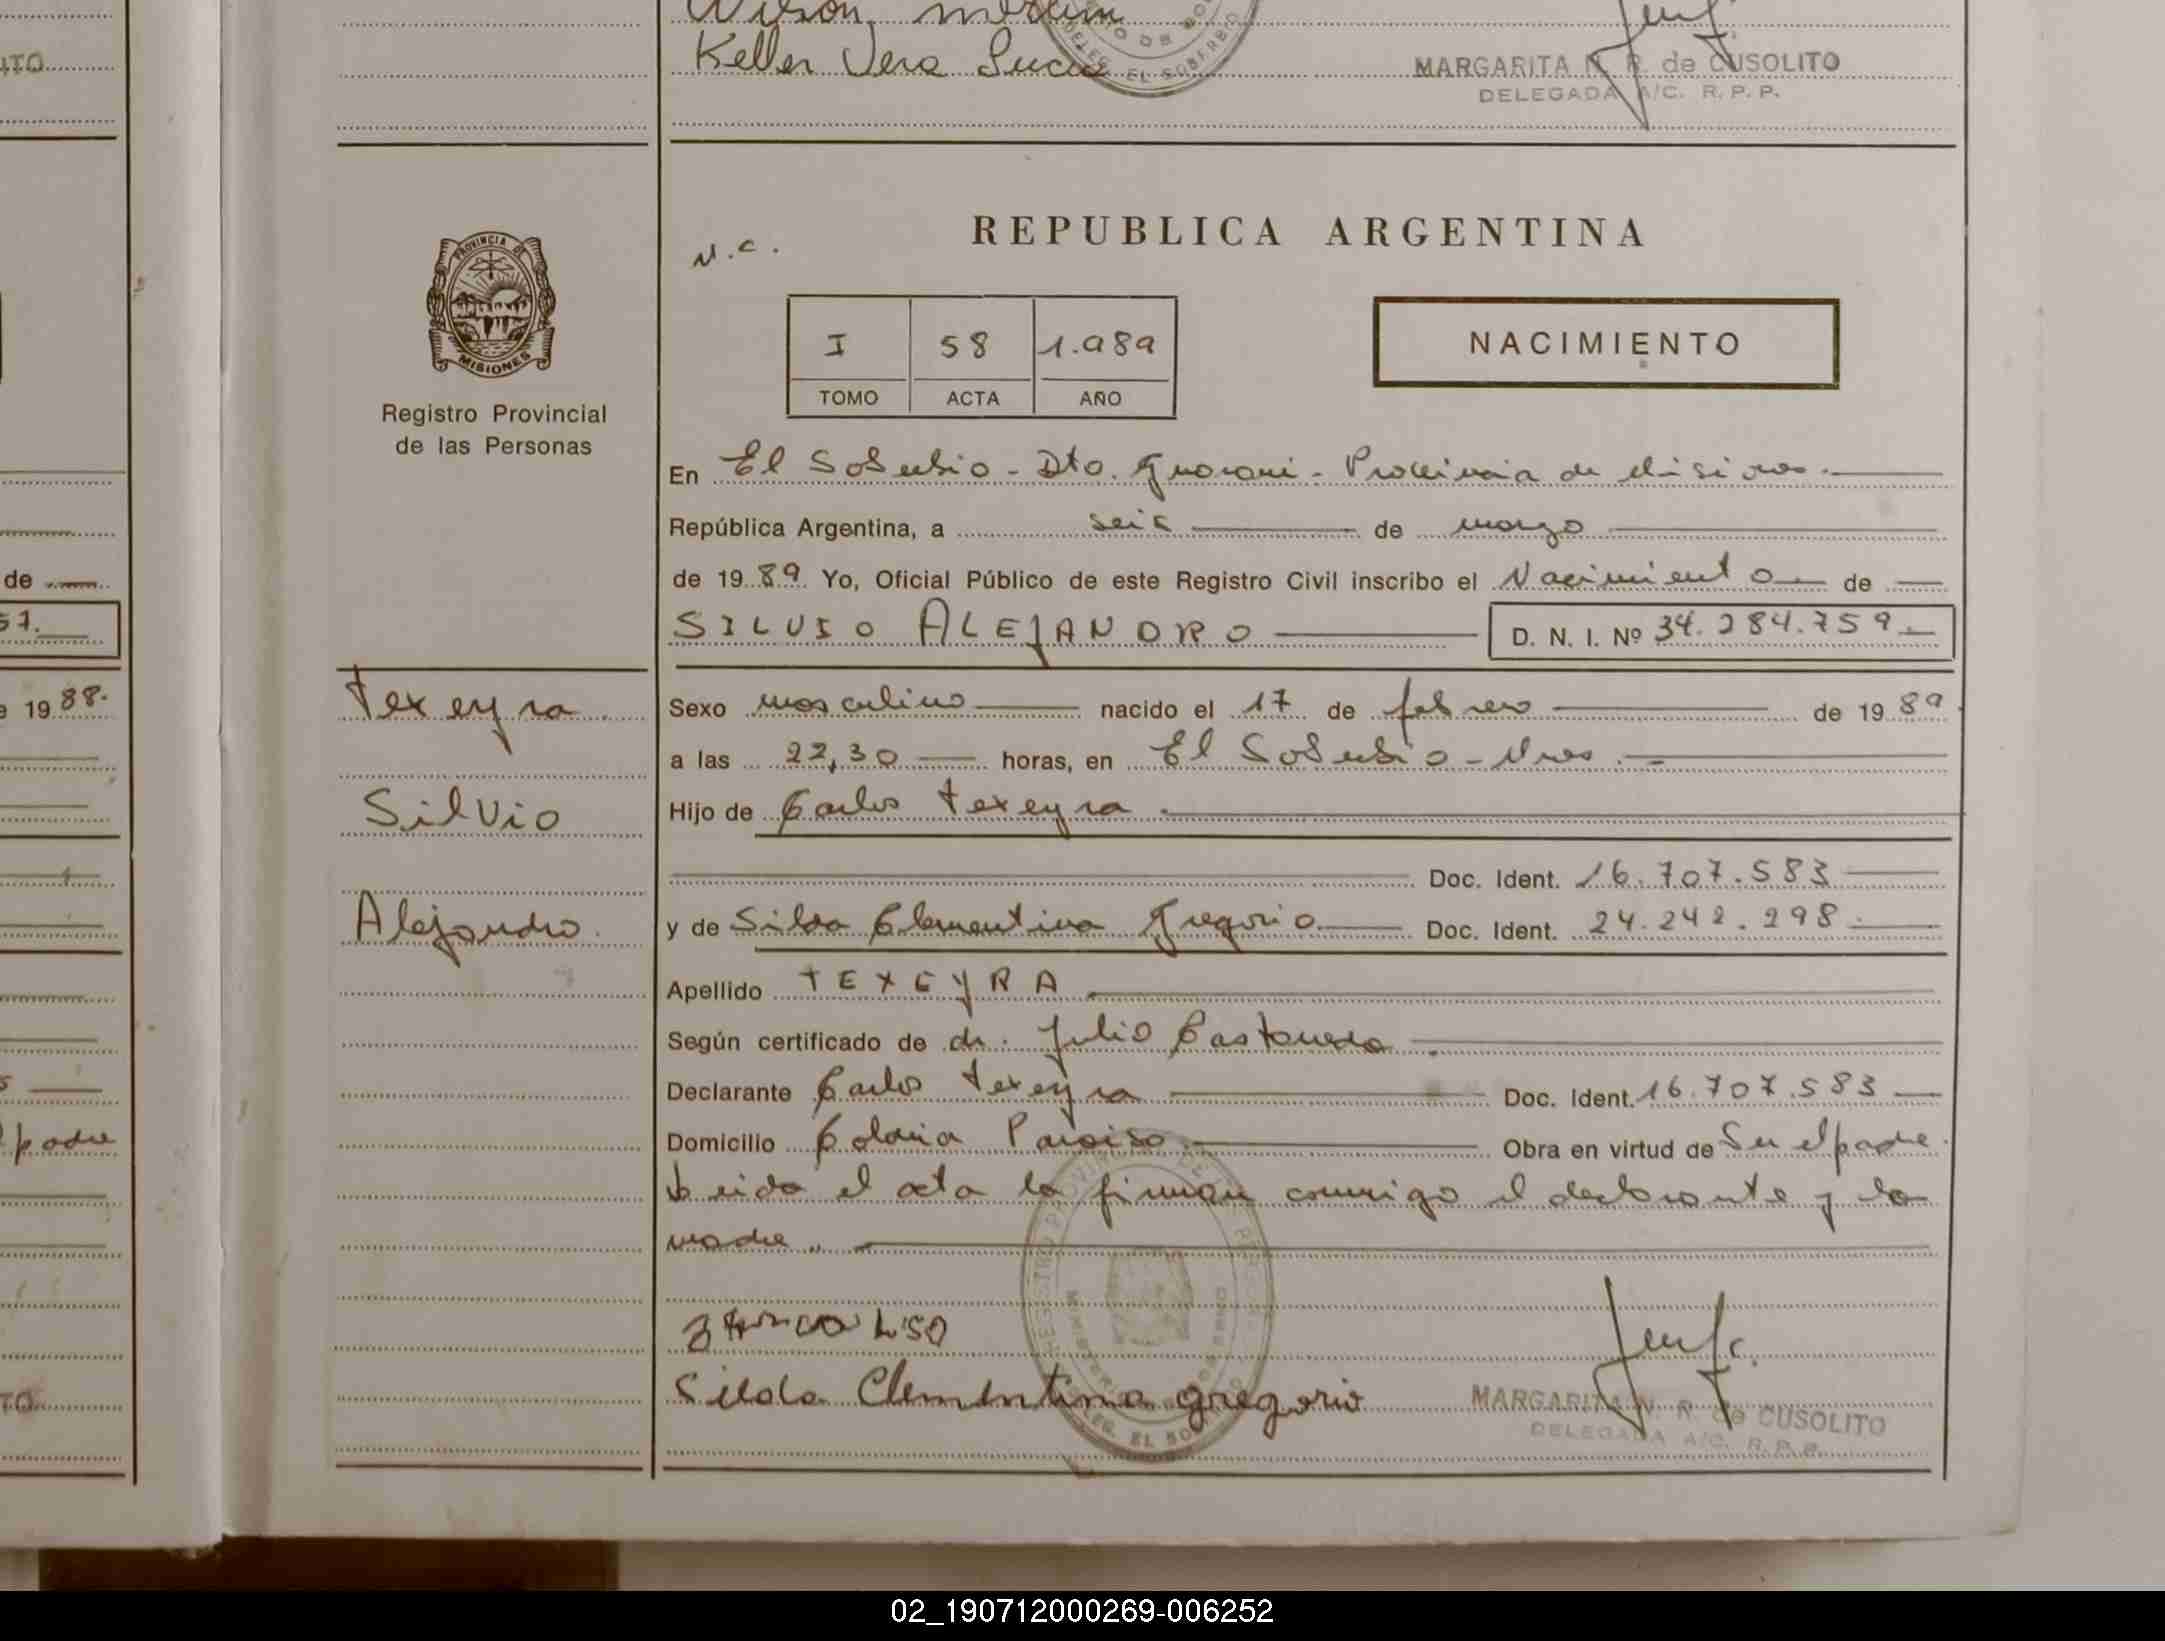 Wilson, Martin
Keller Vera Lucia
DELEG. EL SOBERBIO
MARGARITA N. R. de CUSOLITO
DELEGADA A/C. R. P. P.
PROVINCIA DE
MISIONES
Registro Provincial
de las Personas
N.C.
REPUBLICA ARGENTINA
I 58 1.989
TOMO ACTA AÑO
NACIMIENTO
En El Soberbio - Dto. Guarani - Provincia de Misiones.
República Argentina, a seis de marzo
de 1989 Yo, Oficial Público de este Registro Civil inscribo el Nacimiento de
SILVIO ALEJANDRO D. N. I. Nº 34.284.759
Texeyra
Silvio
Alejandro
Sexo masculino nacido el 17 de febrero de 1989
a las 22,30 horas, en El Soberbio - Mnes.
Hijo de Carlos Texeyra
Doc. Ident. 16.707.583
y de Silda Clementina Gregorio Doc. Ident. 24.242.298
Apellido TEXEYRA
Según certificado de dr. Julio Castaneda
Declarante Carlos Texeyra Doc. Ident. 16.707.583
Domicilio Colonia Paraiso Obra en virtud de Ser el padre.
Leida el acta la firman conmigo el declarante y la
madre
Silda Clementina gregorio
DELEG. EL SOBERBIO
MARGARITA N. R. de CUSOLITO
DELEGADA A/C. R. P. P.
de
57.
1988.
el padre
02_190712000269-006252